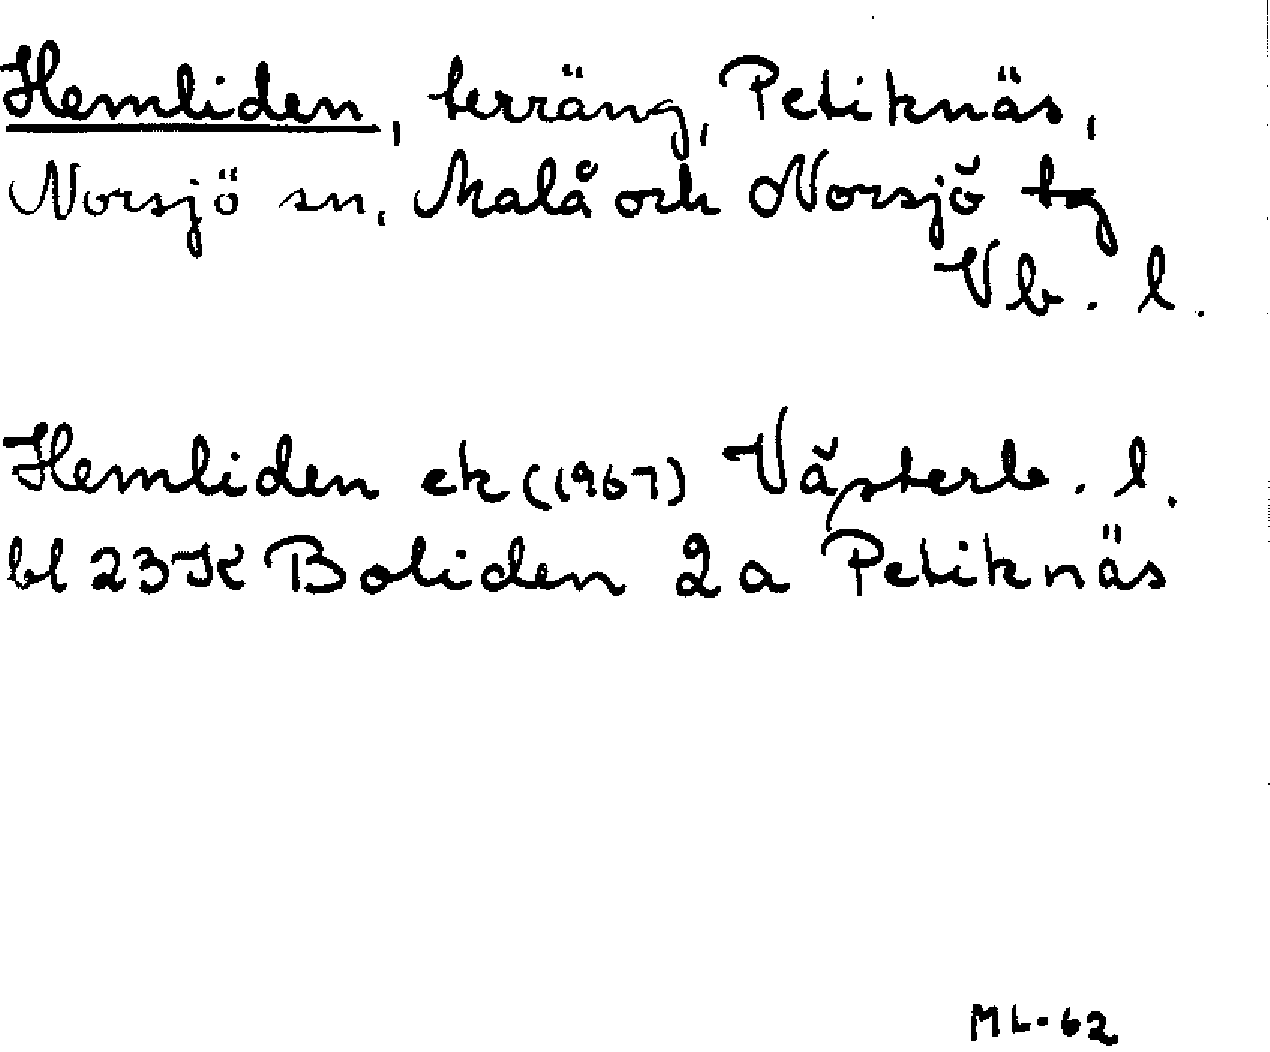 Hemliden, terräng, Petiknäs,
Norsjö sn, Malå och Norsjö tg
Vb. l.
Hemliden ek (1967) Västerb. l.
bl 23K Boliden 2a Petiknäs
ML-62